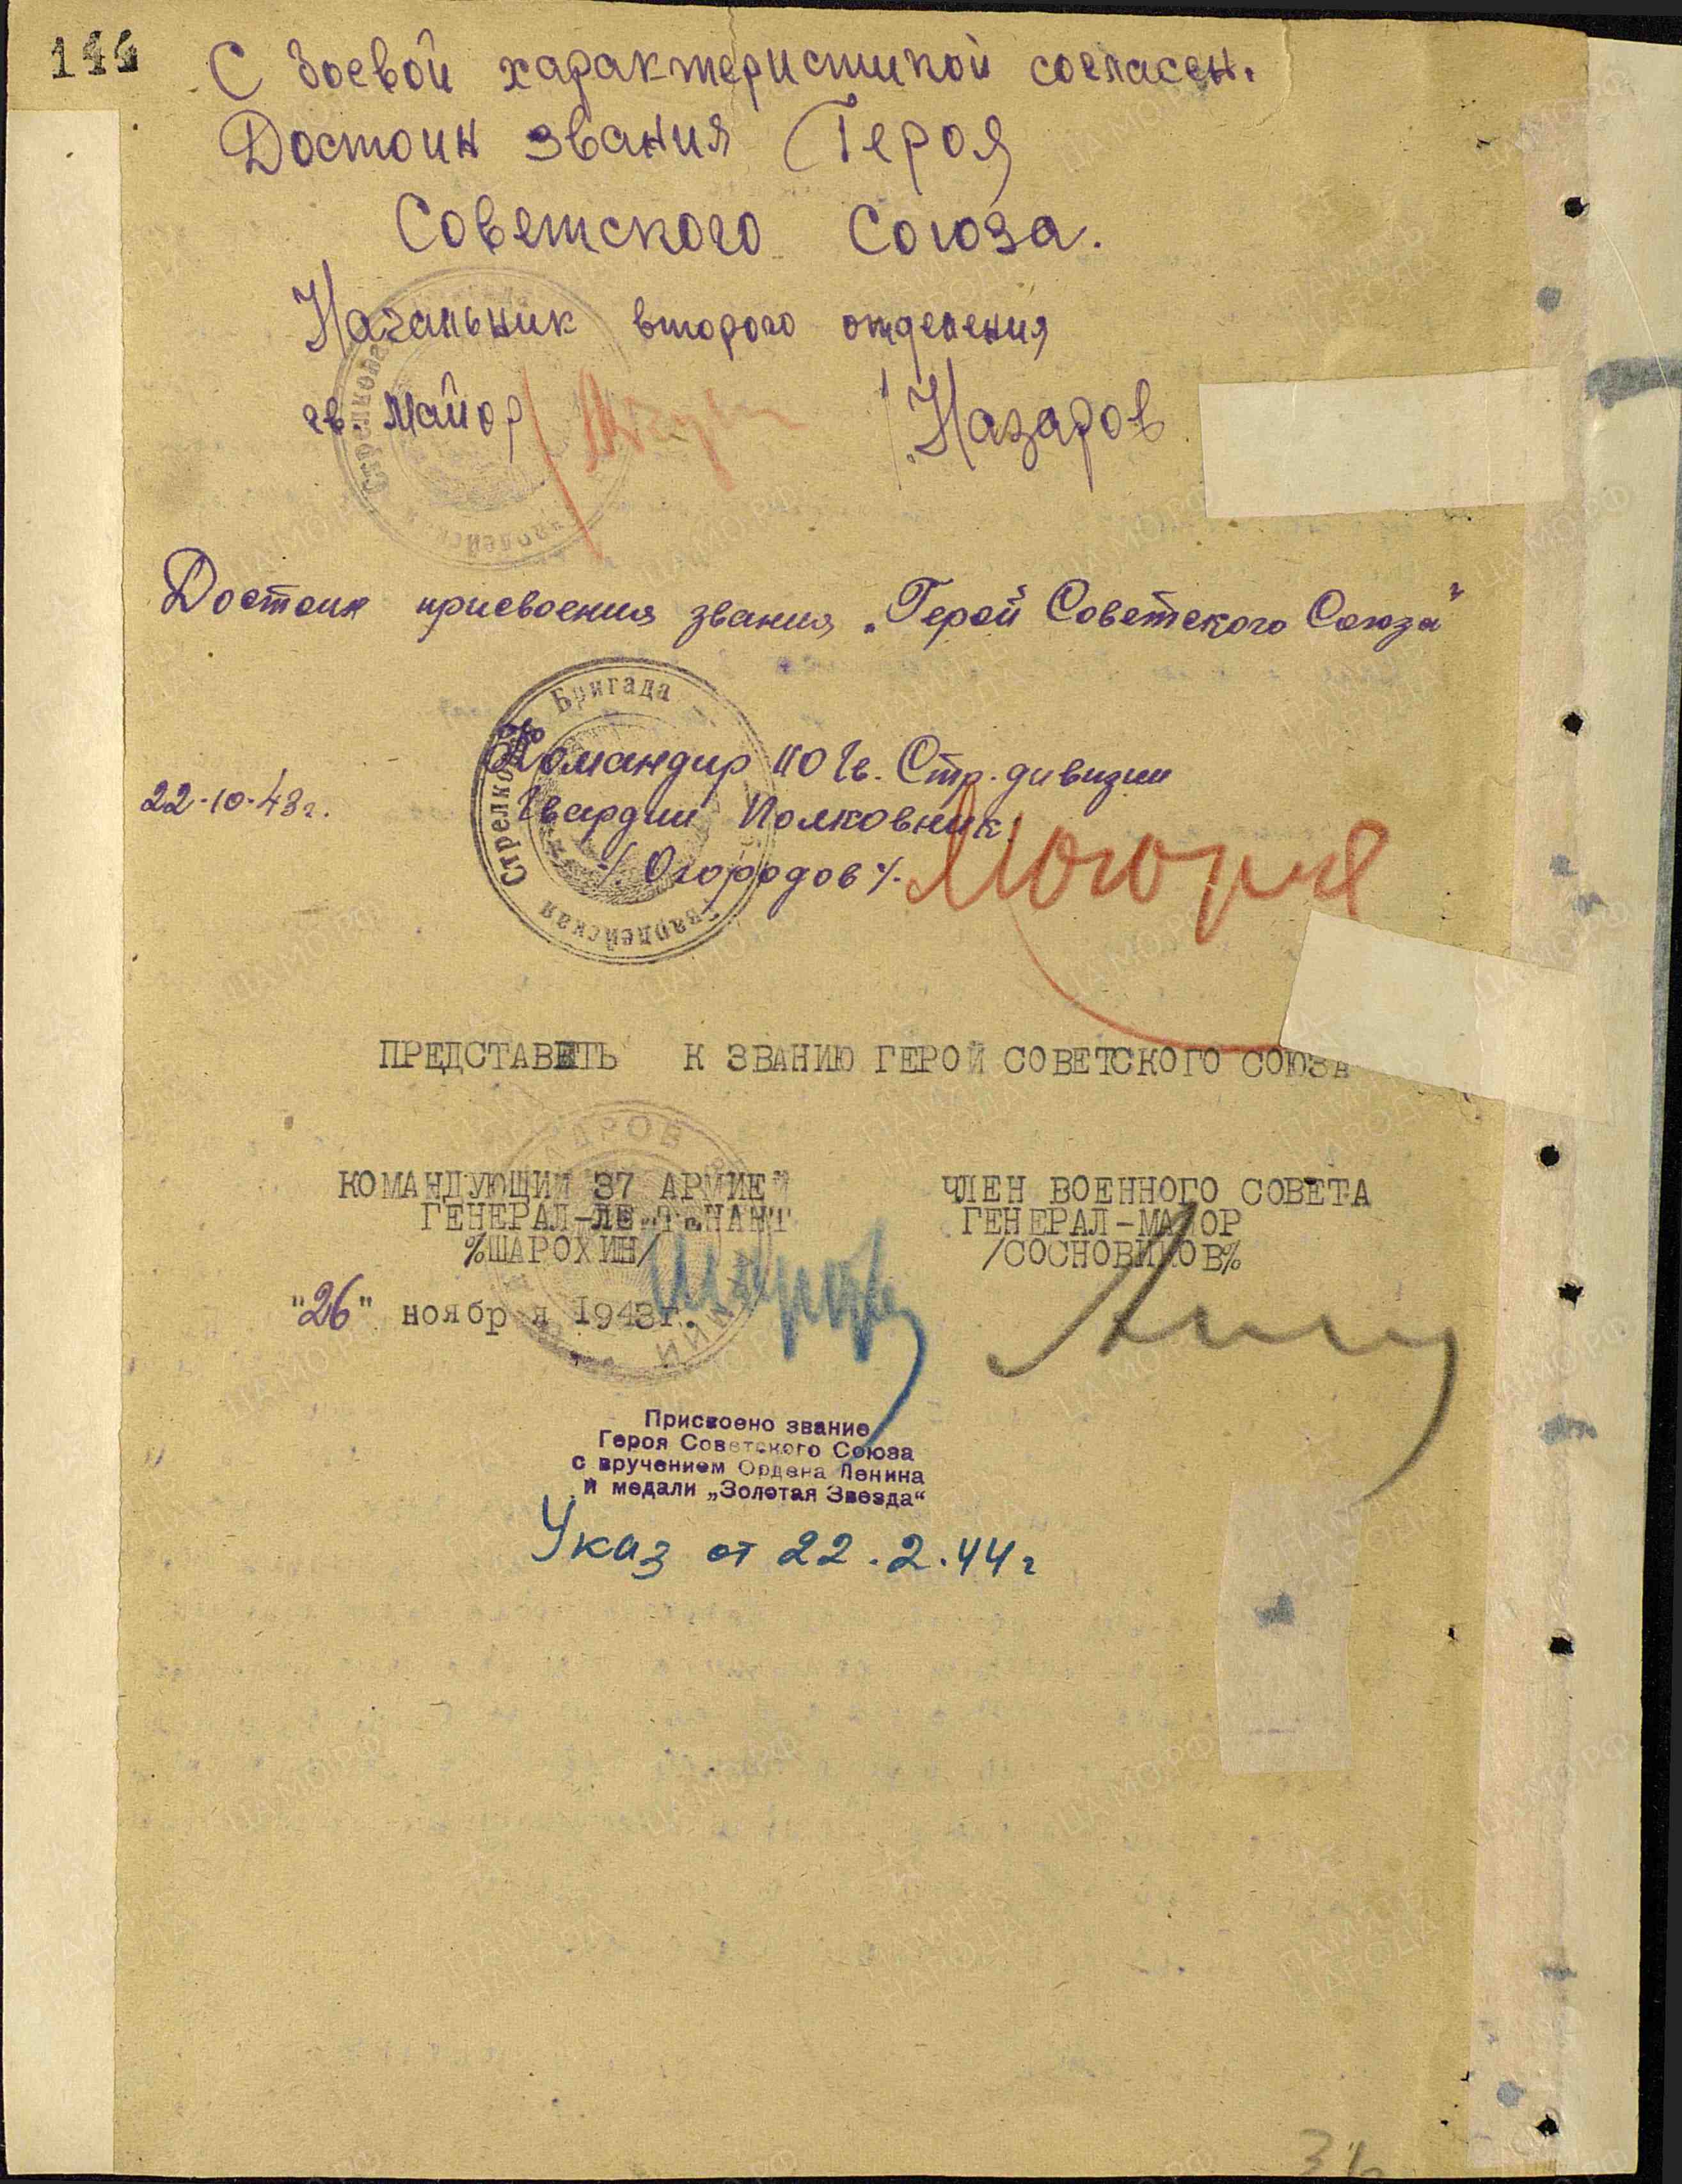 144
С боевой характеристикой согласен.
Достоин звания Героя
Советского Союза.
Начальник второго отделения
гв. майор / Назаров
Достоин присвоения звания „Герой Советского Союза"
Стрелковая Бригада
Гвардейская
Командир 110 Гв. Стр. дивизии
22-10-43г.
Гвардии Полковник
/. Огородов /.
ПРЕДСТАВИТЬ К ЗВАНИЮ ГЕРОЙ СОВЕТСКОГО СОЮЗА
КОМАНДУЮЩИЙ 37 АРМИЕЙ
ГЕНЕРАЛ-ЛЕЙТЕНАНТ
%ШАРОХИН/
ЧЛЕН ВОЕННОГО СОВЕТА
ГЕНЕРАЛ-МАЙОР
/СОСНОВИКОВ%
"26" ноября 1943г.
Присвоено звание
Героя Советского Союза
с вручением Ордена Ленина
и медали „Золотая Звезда“
Указ от 22.2.44г